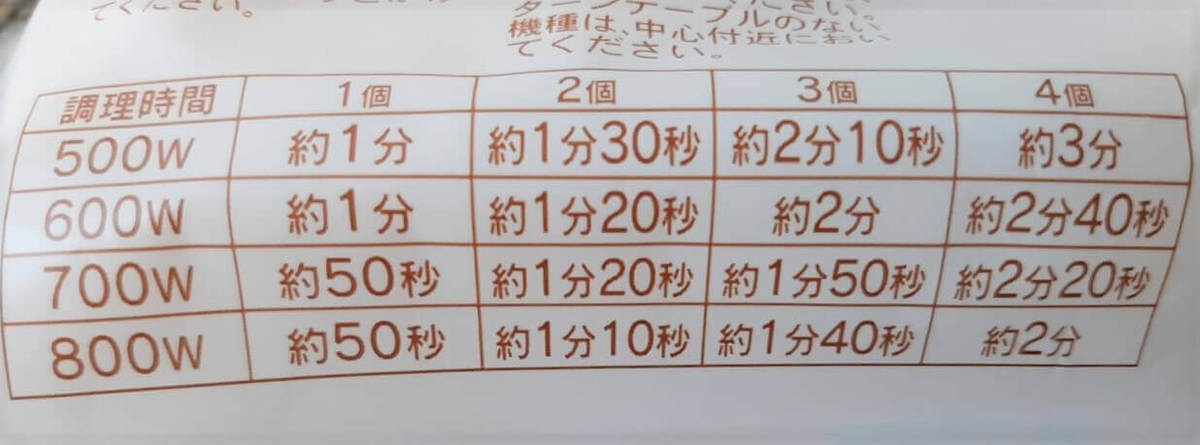 てください。
ください。
ターンテーブルのない
機種は、中心付近におい
てください。
調理時間 1個 2個 3個 4個
500W 約1分 約1分30秒 約2分10秒 約3分
600W 約1分 約1分20秒 約2分 約2分40秒
700W 約50秒 約1分20秒 約1分50秒 約2分20秒
800W 約50秒 約1分10秒 約1分40秒 約2分